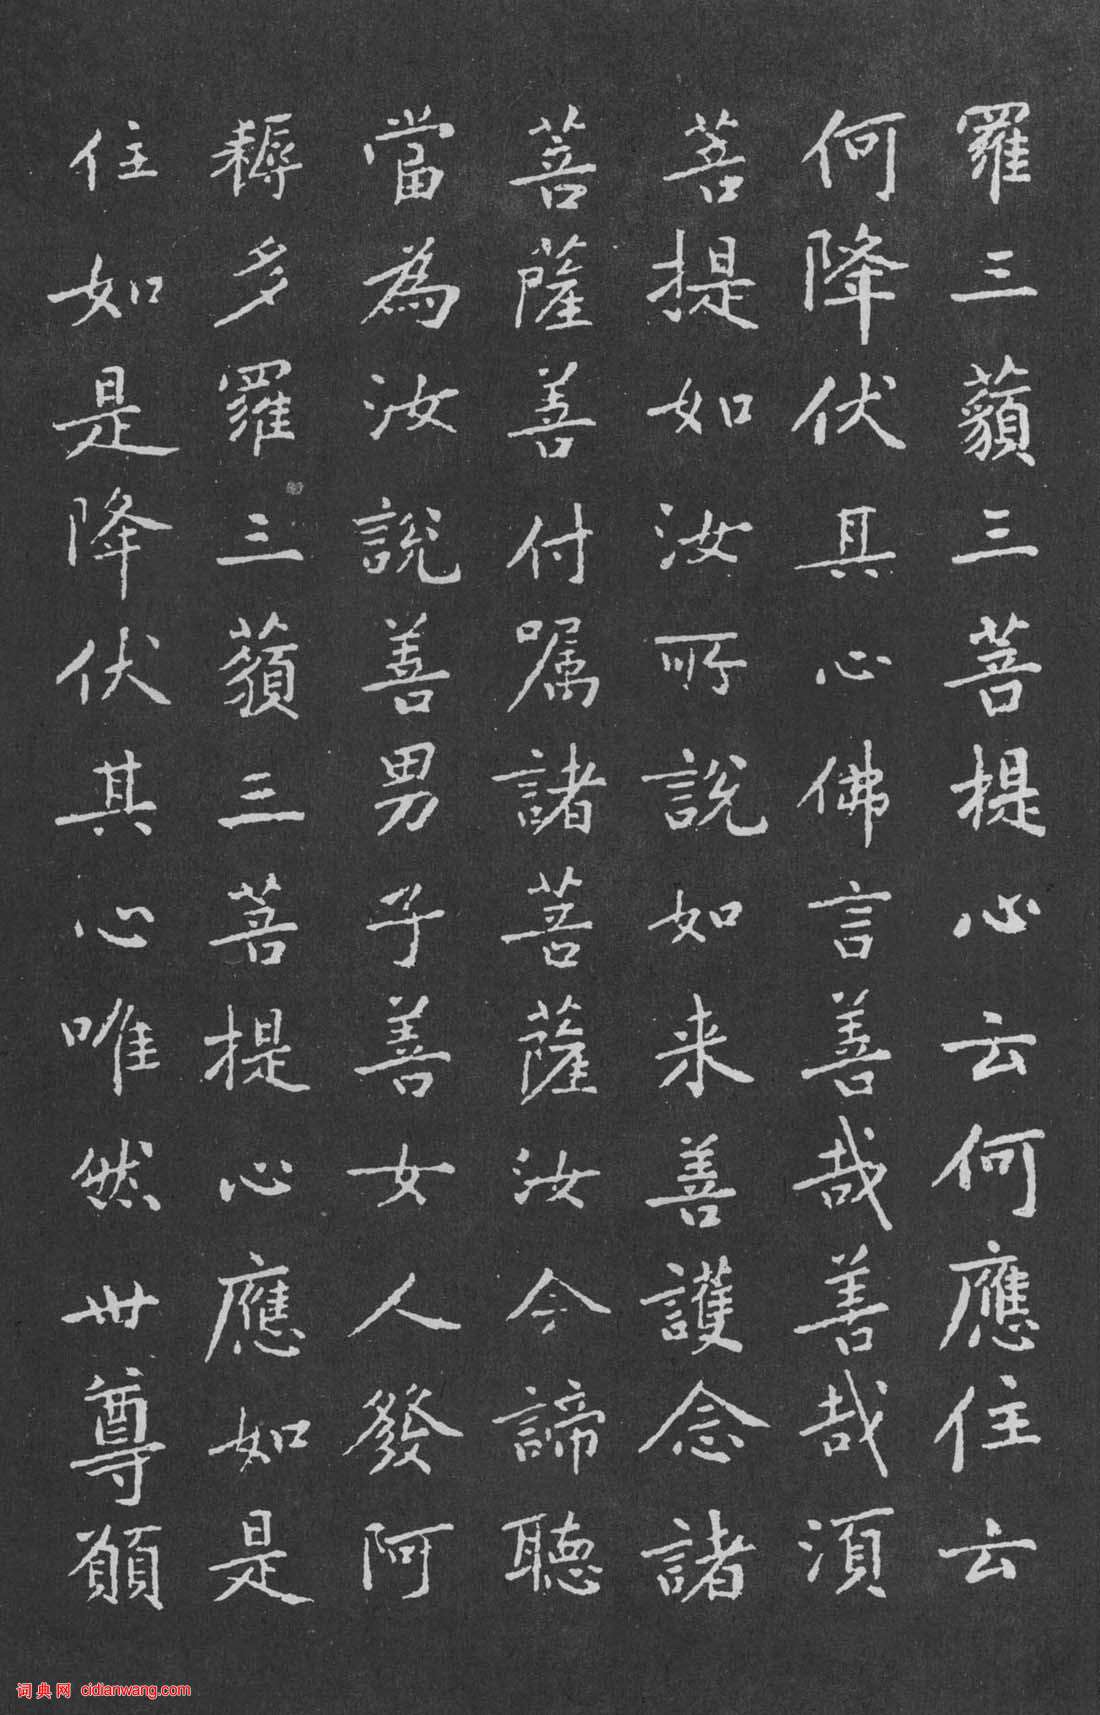 羅三藐三菩提心云何應住云
何降伏其心佛言善哉善哉須
菩提如汝所說如来善護念諸
菩薩善付嘱諸菩薩汝今諦聽
當為汝說善男子善女人發阿
耨多羅三藐三菩提心應如是
住如是降伏其心唯然世尊願
词典网 cidianwang.com